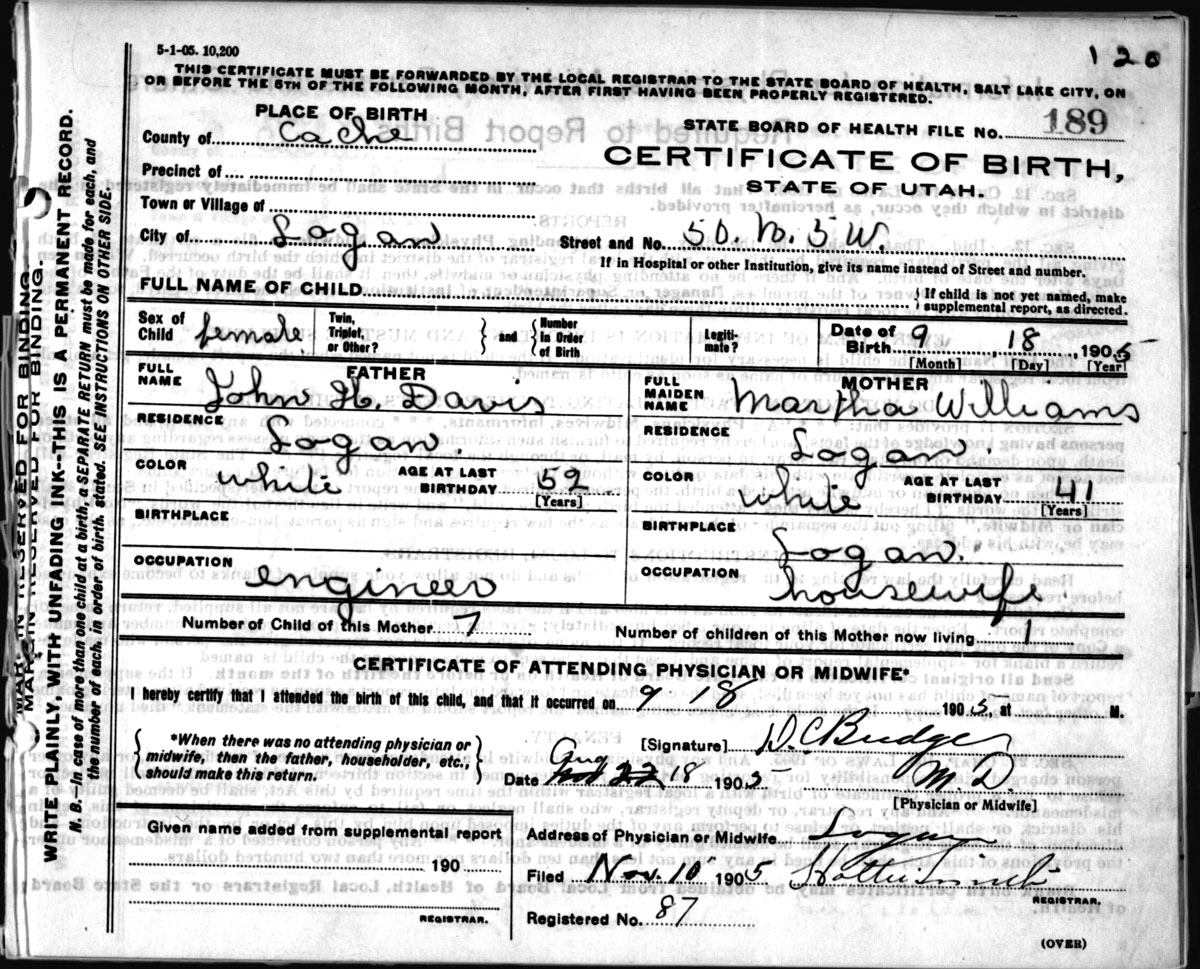 5-1-05. 10,200
120
THIS CERTIFICATE MUST BE FORWARDED BY THE LOCAL REGISTRAR TO THE STATE BOARD OF HEALTH, SALT LAKE CITY, ON
OR BEFORE THE 5TH OF THE FOLLOWING MONTH, AFTER FIRST HAVING BEEN PROPERLY REGISTERED.
PLACE OF BIRTH
STATE BOARD OF HEALTH FILE No. 189
County of Cache
CERTIFICATE OF BIRTH,
Precinct of
STATE OF UTAH.
Town or Village of
City of Logan Street and No. 50. N. 5 W.
If in Hospital or other Institution, give its name instead of Street and number.
FULL NAME OF CHILD
If child is not yet named, make
supplemental report, as directed.
Sex of Child female
Twin, Triplet, or Other?
and Number in Order of Birth
Legitimate?
Date of Birth 9 18 1905
[Month] [Day] [Year]
FATHER
FULL NAME John H. Davis
MOTHER
FULL MAIDEN NAME Martha Williams
RESIDENCE Logan.
RESIDENCE Logan.
COLOR white AGE AT LAST BIRTHDAY 52 [Years]
COLOR white AGE AT LAST BIRTHDAY 41 [Years]
BIRTHPLACE
BIRTHPLACE Logan.
OCCUPATION engineer
OCCUPATION housewife
Number of Child of this Mother 7
Number of children of this Mother now living 1
CERTIFICATE OF ATTENDING PHYSICIAN OR MIDWIFE*
I hereby certify that I attended the birth of this child, and that it occurred on 9 18 1905, at M.
*When there was no attending physician or
midwife, then the father, householder, etc.,
should make this return.
[Signature] D. C. Budge
Date Aug 18 1905 M D.
[Physician or Midwife]
Given name added from supplemental report
190
REGISTRAR.
Address of Physician or Midwife Logan
Filed Nov. 10 1905
REGISTRAR.
Registered No. 87
(OVER)
MARGIN RESERVED FOR BINDING
MARGIN RESERVED FOR BINDING.
WRITE PLAINLY WITH UNFADING INK—THIS IS A PERMANENT RECORD.
N. B.—In case of more than one child at a birth, a SEPARATE RETURN must be made for each, and
the number of each, in order of birth, stated. SEE INSTRUCTIONS ON OTHER SIDE.